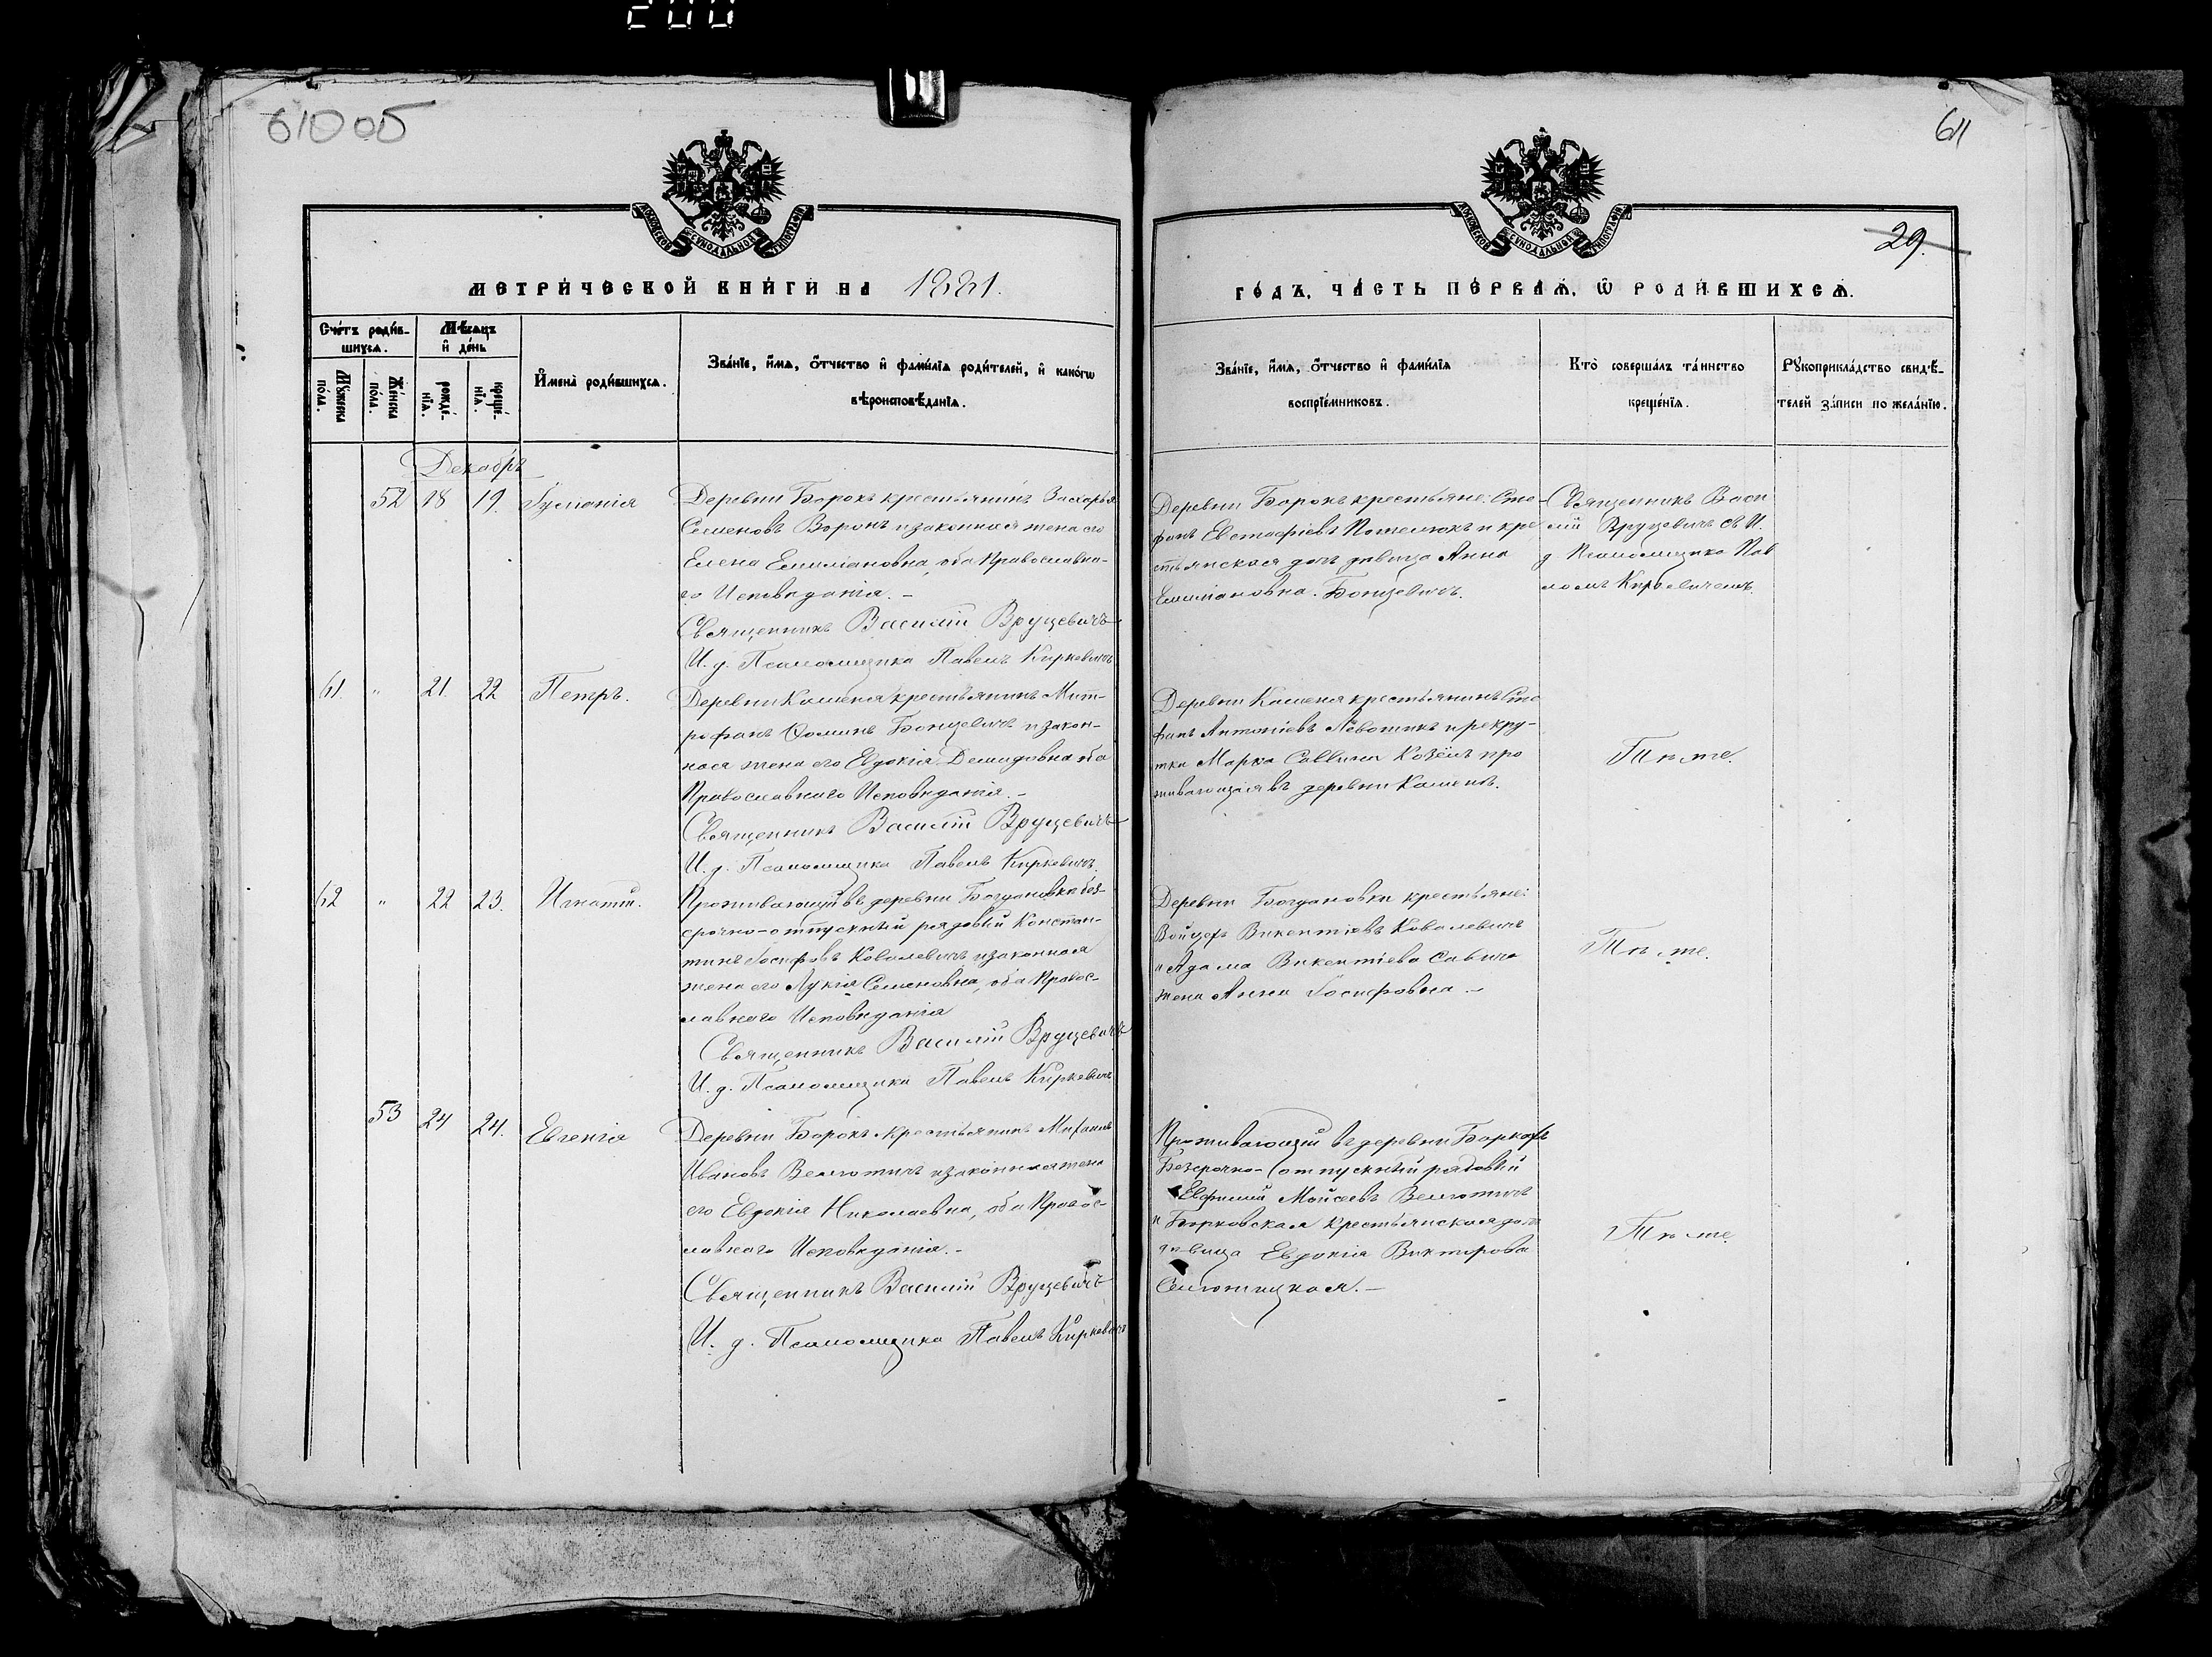 200
610об
611
29.
МОСКОВСКОЙ СѴНОДАЛЬНОЙ ТИПОГРАФІИ
МОСКОВСКОЙ СѴНОДАЛЬНОЙ ТИПОГРАФІИ
МЕТРИ́ЧЕСКОЙ КНИ́ГИ НА 1881.
ГО́ДЪ, ЧА́СТЬ ПЕ́РВАѦ, Ѿ РОДИ́ВШИХСѦ.
Сче́тъ роди́в-
шихсѧ.
Мꙋ́жеска по́ла.
Же́нска по́ла.
Мѣ́сѧцъ
и҆ де́нь
рожде́-
нїѧ.
креще́-
нїѧ.
И҆мена̀ роди́вшихсѧ.
Зва́нїе, и҆́мѧ, ѻ҆́тчество и҆ фами́лїѧ роди́телей, и҆ како́гѡ
вѣроисповѣ́данїѧ.
Зва́нїе, и҆́мѧ, ѻ҆́тчество и҆ фами́лїѧ
воспрїе́мниковъ.
Кто̀ соверша́лъ та́инство
креще́нїѧ.
Рꙋкоприкла́дство свидѣ́-
телей за́писи по жела́нїю.
Декабрь
52 18 19. Іуліанія
Деревни Борокъ крестьянинъ Захарья
Семеновъ Воронъ и законная жена его
Елена Емиліановна, оба Православна-
го Исповѣданія. –
Священникъ Василій Вруцевичъ
И. д. Псаломщика Павелъ Киркевичъ
Деревни Борокъ крестьяне: Сте-
фанъ Евстафіевъ и кре
стьянская дочь дѣвица Анна
Емиліановна Бонцевичъ.
Священникъ Васи
лій Вруцевичъ съ И.
д. Псаломщика Пав
ломъ Киркевичемъ.
61 " 21. 22 Петръ.
Деревни Каменя крестьянинъ Мит-
рофанъ Ѳоминъ Бонцевичъ и закон-
ная жена его Евдокія Демидовна оба
Православнаго Исповѣданія. –
Священникъ Василій Вруцевичъ
И. д. Псаломщика Павелъ Киркевичъ.
Деревни Каменя крестьянинъ Сте
фанъ Антоніевъ и рекру-
тка Марка Саввина Козёлъ про
живающая въ деревни Каменѣ.
Тѣ же.
62 " 22 23. Игнатій.
Проживающій въ деревни Богдановкѣ без-
срочно-отпускный рядовый Констан-
тинъ Іосифовъ Ковалевичъ и законная
жена его Лукія Семеновна, оба Правос-
лавнаго Исповѣданія
Священникъ Василій Вруцевичъ
И. д. Псаломщика Павелъ Киркевичъ
Деревни Богдановки крестьяне:
Войцехъ Викентіевъ Ковалевичъ
и Адама Викентіева Савича
жена Анна Іосифовна –
Тѣ же.
53 24 24. Евгенія
Деревни Борокъ крестьянинъ Михаилъ
Ивановъ Велютичъ и законная жена
его Евдокія Николаевна, оба Правос-
лавнаго Исповѣданія. –
Священникъ Василій Вруцевичъ
И. д. Псаломщика Павелъ Киркевичъ
Проживающій въ деревни Боркахъ
Безсрочно-отпускный рядовый
Ефимій Мойсеевъ Велютичъ
и Борковская крестьянская дочь
дѣвица Евдокія Викторова
Селютицкая. –
Тѣ же.